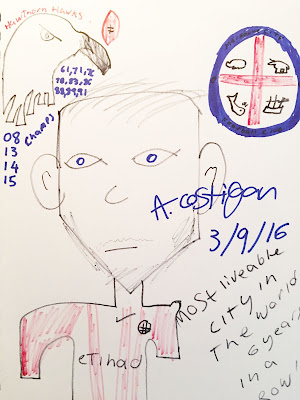 Hawthorn Hawks
61,71,
88,89,91
08
13
14
15
Champs
FOOTBALL CLUB
A. Costigan
3/9/16
eTihad
Most liveable
city in
The World
6 years
in a
row!